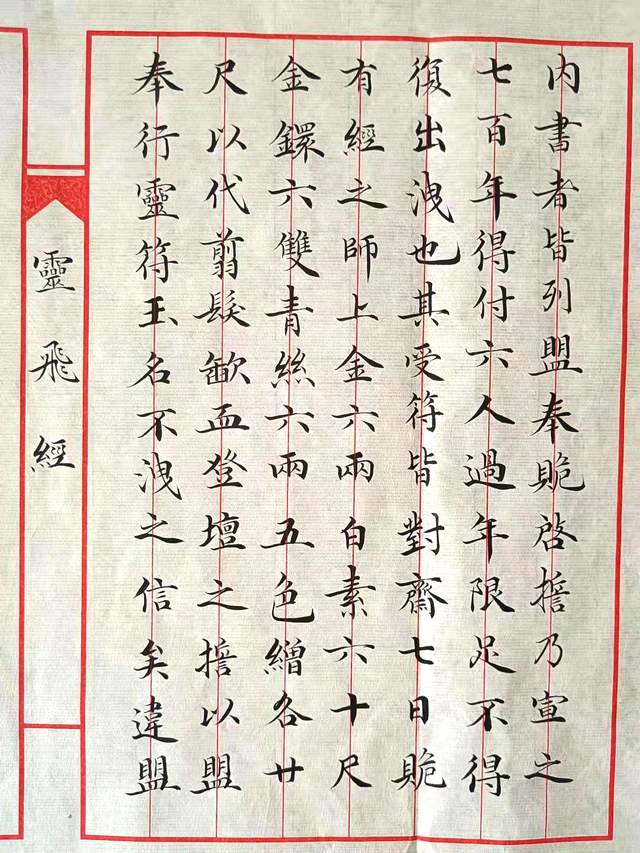 内書者皆列盟奉贍啓擔乃宣之
七百年得付六人過年限足不得
復出洩也其受符皆對齋七日贍
有經之師上金六兩白素六十尺
金鐶六雙青絲六兩五色繒各廿
尺以代翦髮歃血登壇之擔以盟
奉行靈符玉名不洩之信矣違盟
靈飛經